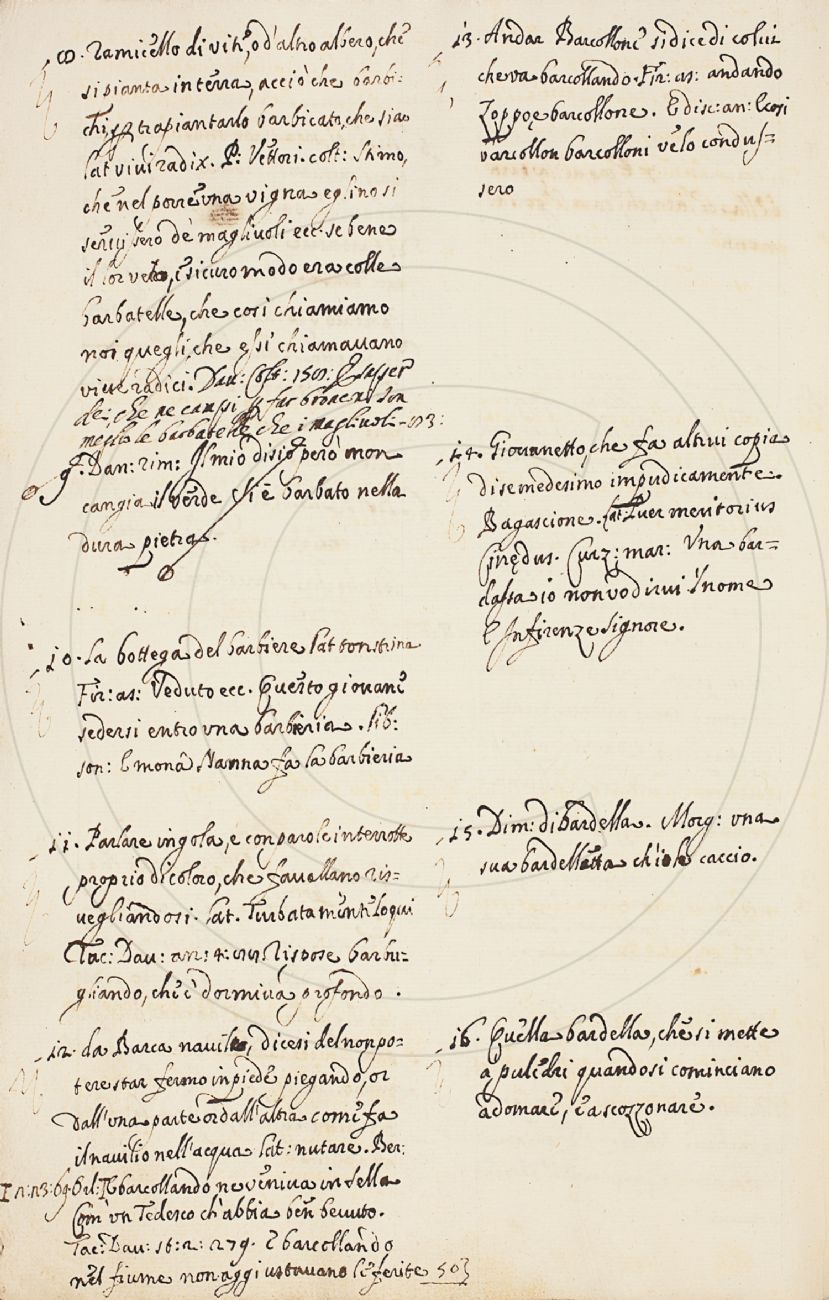 8. Ramicello di vite, o d'altro albero, che
si pianta in terra, acciò che barbi-
chi, p trapiantarlo barbicato, che sia
Lat viui radix. P: Vettori. colt: stimo,
che nel porre una vigna eglino si
seruissero de magliuoli ecc. se bene
il lor vero, e sicuro modo era colle
barbatelle, che così chiamiamo
noi quegli, che essi chiamauano
viue radici. Dau: Colt: 150:
de; che ne campi p far broncon son
meglio le barbatelle che i magliuoli
9. Dan: rim: Il mio disio però non
cangia il verde Si è barbato nella
dura pietra.
10. La bottega del barbiere Lat tonstrina
Fir: as: Veduto ecc. Questo giovane
sedersi entro una barbieria. Lib:
son: E mona Nanna fa la barbieria
11. Parlare in gola, e con parole interrotte
proprio di coloro, che fauellano ris-
uegliandosi. Lat. Turbata mente loqui
Tac: Dau: an: 4: Rispose barbu-
gliando, che e' dormiua profondo.
12. da Barca nauilio, dicesi del non po-
tere star fermo in piede piegando, or
dall'una parte or dall'altra come fa
il nauilio nell'acqua Lat: nutare. Ber:
In: n3: 69 barcollando ne veniua in sella
Com' un Tedesco ch'abbia ben beuuto.
Tac: Dau: st: 2: 279. E barcollando
nel fiume non aggiustauano le ferite 503
13. Andar Barcollone si dice di colui
che va barcollando. Fir: as: andando
Zoppo, e barcollone. E disc: an: E così
barcollon barcolloni ve lo condus-
sero
14. Giouanetto, che fa altrui copia
di se medesimo impudicamente.
Bagascione. Lat Puer meritorius
Cinędus. Curz: mar: Una bar-
dassa io non vo dirui 'l nome
E In firenze Signore.
15. Dim: di bardella. Morg: una
sua bardelletta ch'io le caccio.
16. Quella bardella, che si mette
a puledri quando si cominciano
a domare, e a scozzonare.